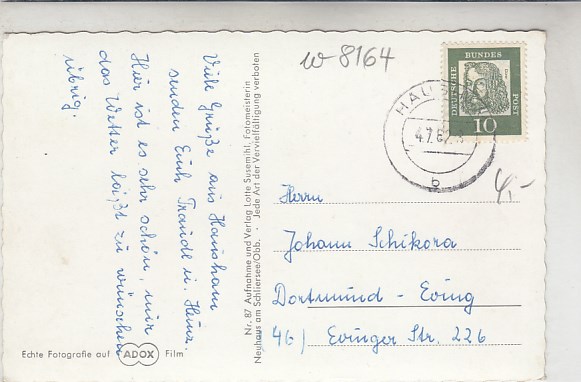 w-8164
Viele Grüße aus Hausham
senden Euch Traudl u. Heinz.
Hier ist es sehr schön, nur
das Wetter läßt zu wünschen
übrig.
Nr. 87 Aufnahme und Verlag Lotte Susemihl, Fotomeisterin
Neuhaus am Schliersee/Obb. · Jede Art der Vervielfältigung verboten
DEUTSCHE BUNDES POST
10
HAUSHAM
b
4,-
Herrn
Johann Schikora
Dortmund - Eving
46) Evinger Str. 226
Echte Fotografie auf ADOX Film